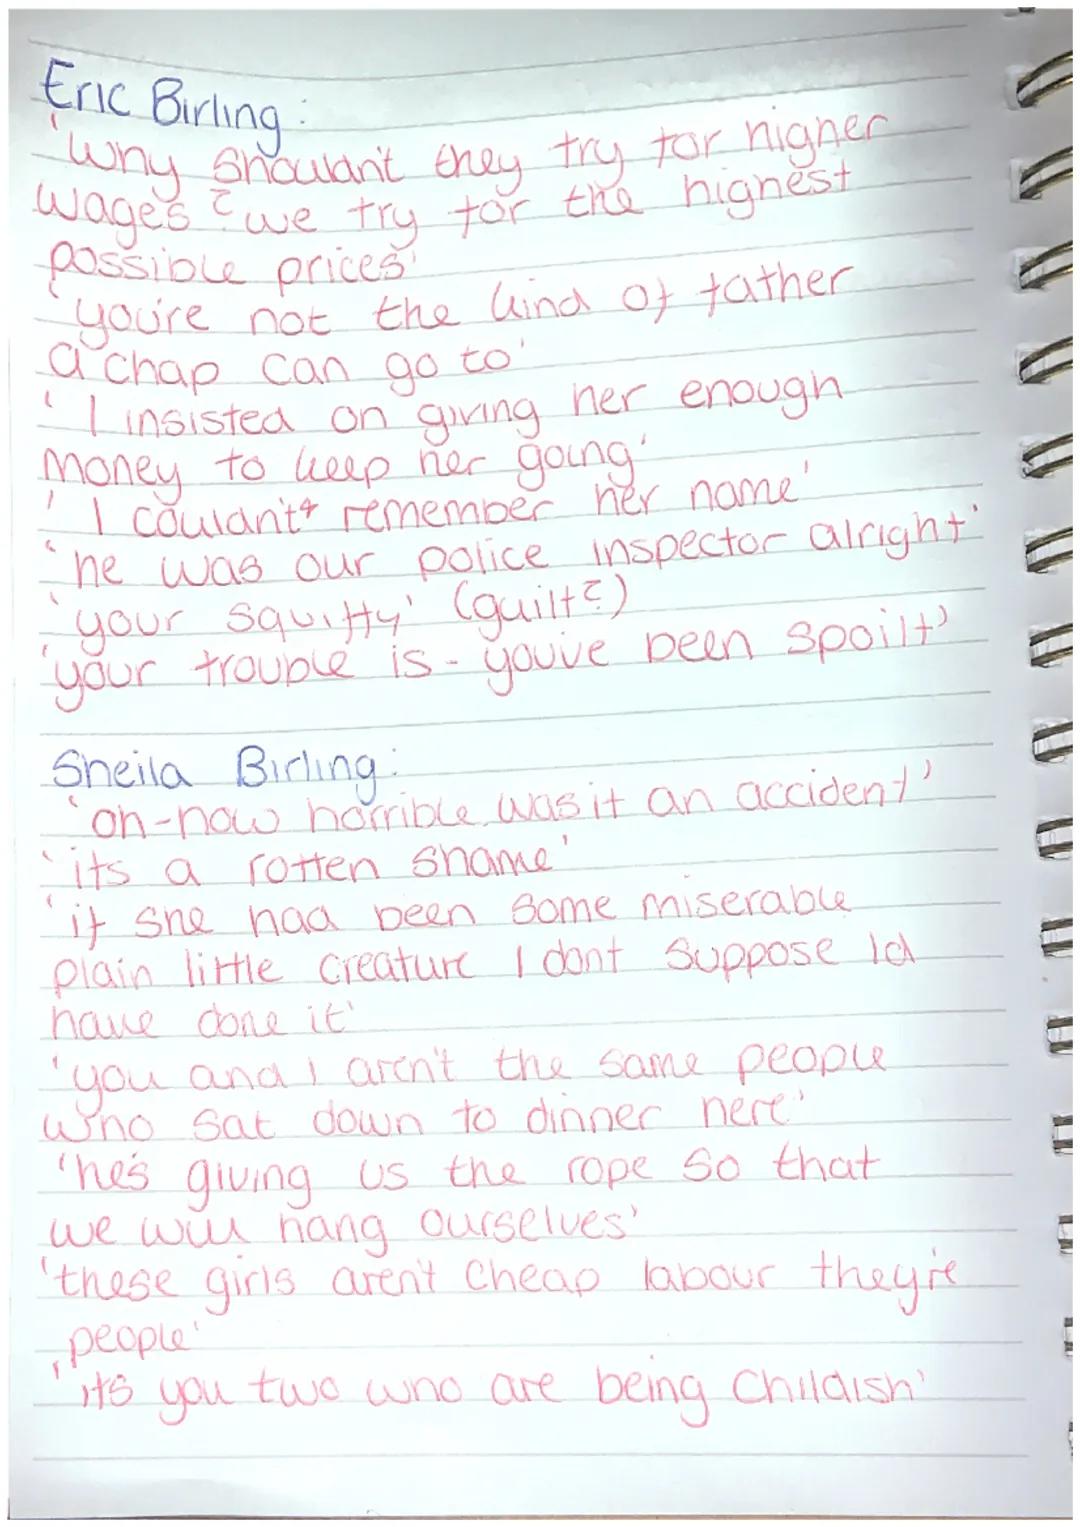 Eric Birling:
'Why shouldn't they try for higher
wages? we try for the highest
possible prices'
'you're not the kind of father
a chap can go to'
'I insisted on giving her enough
money to keep her going'
'I couldn't remember her name'
'he was our police inspector alright'
'your squiffy' (guilt?)
'your trouble is - youve been spoilt'
Sheila Birling:
'oh-how horrible. was it an accident'
'its a rotten shame'
'if she had been some miserable
plain little creature I dont suppose Id
have done it'
'you and I aren't the same people
who sat down to dinner here'
'he's giving us the rope so that
we will hang ourselves'
'these girls aren't cheap labour they're
people'
'its you two who are being childish'